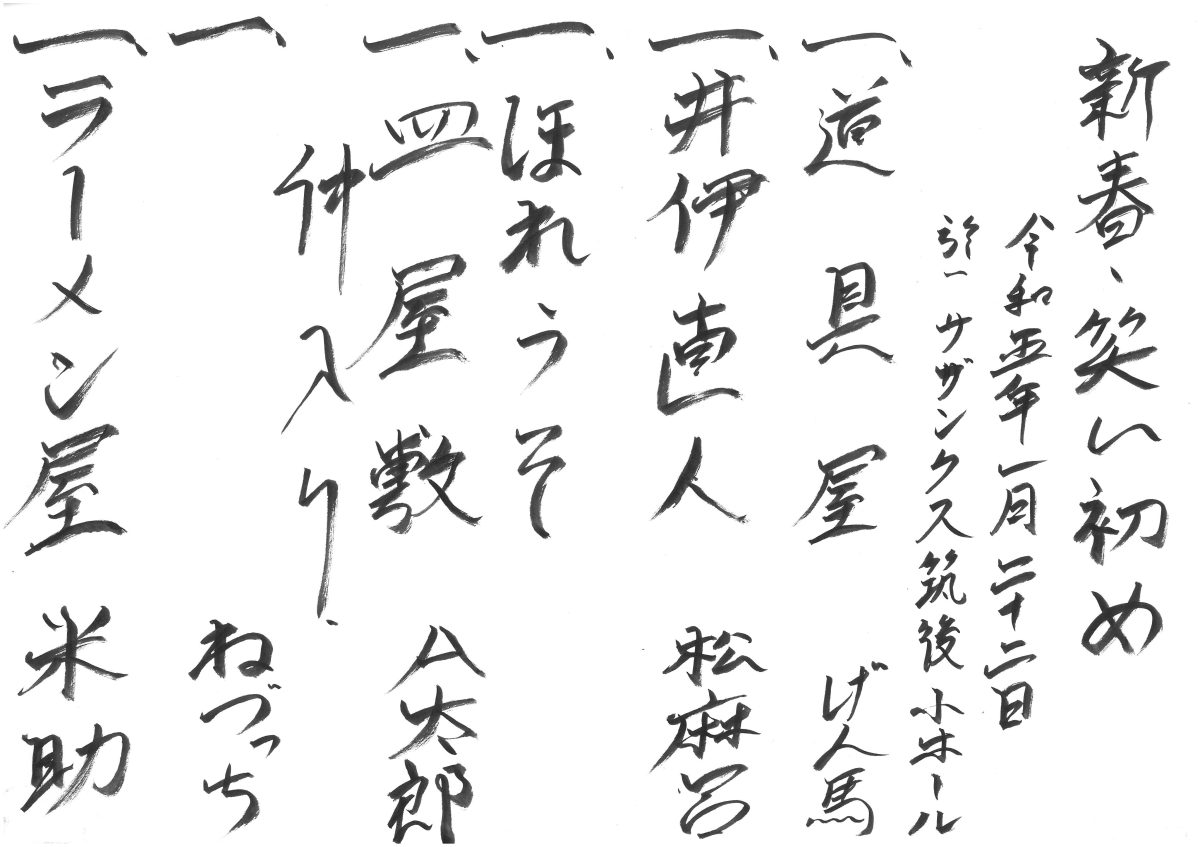 新春、笑い初め
令和五年一月二十二日
於 サザンクス筑後小ホール
一、道具屋 げん馬
一、井伊直人 松麻呂
一、ほれうそ
一、皿屋敷 八太郎
仲入り、
一、 ねづっち
一、ラーメン屋 米助